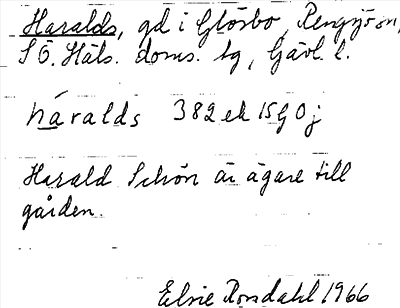 Haralds, gd i Glösbo, Rengsjö sn,
SÖ. Häls. doms. tg, Gävl. l.
háralds 382 ek 15G0j
Harald Schön är ägare till
gården.
Elsie Rosdahl 1966